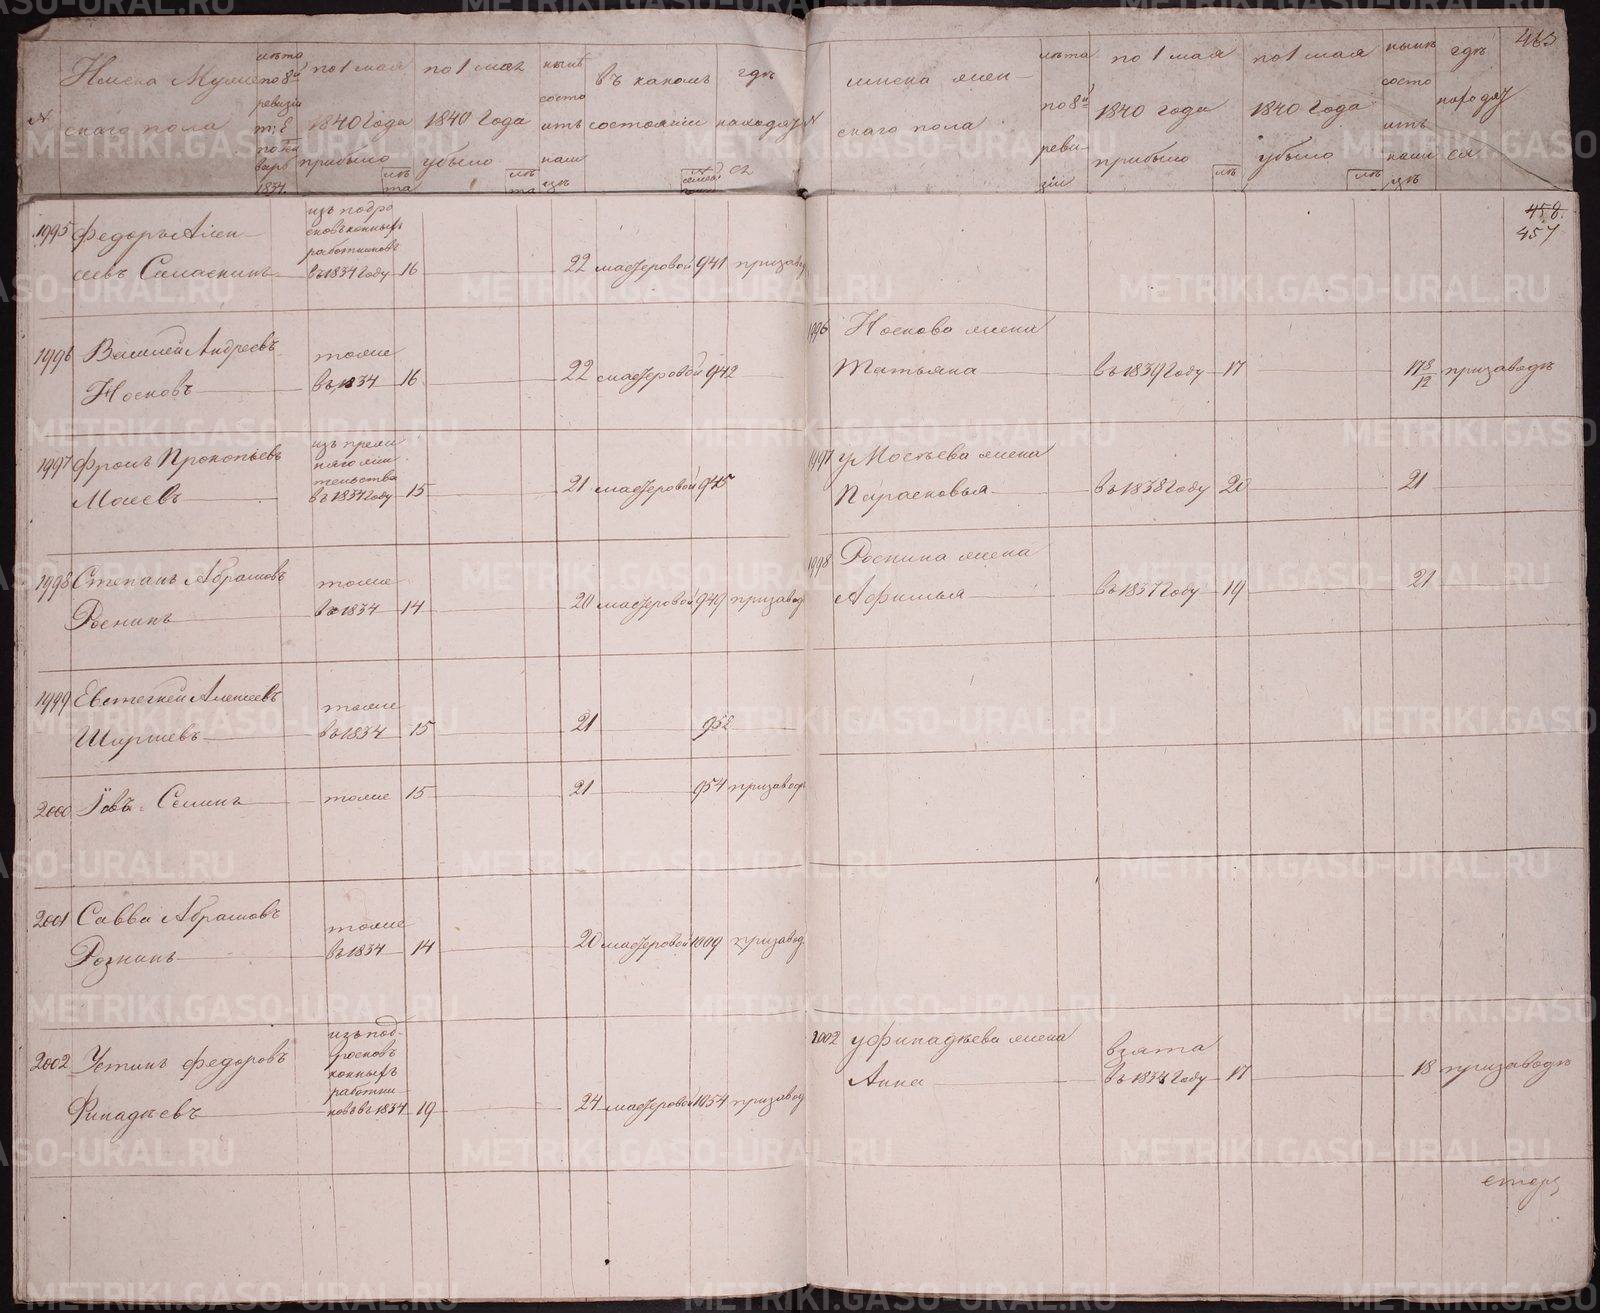 463
№
Имена Мужескаго пола
лѣта по 8й ревизіи
1834
по 1 мая 1840 года прибыло
лѣта
по 1 мая 1840 года убыло
лѣта
нынѣ состоитъ налицѣ
въ какомъ состояніи
гдѣ находятся
№
имена женскаго пола
лѣта по 8й ревизіи
по 1 мая 1840 года прибыло
лѣ
по 1 мая 1840 года убыло
лѣ
нынѣ состоитъ налицѣ
гдѣ находятся
458.
457
1995 Федоръ Алек-
сеевъ
изъ подро
сковъ конныхъ
работниковъ
въ 1834 году 16 22 мастеровой 941 призавод
1996 Василей Андреевъ
Носковъ
тоже
въ 1834 16 22 мастеровой 942
1996 Носкова жена
Татьяна въ 1839 году 17 17 8/12 призаводѣ
1997 Прокопьевъ
въ 1834 году 15 21 мастеровой 945
1997 жена
Парасковья въ 1838 году 20 21
1998 Степанъ Абрамовъ
тоже
въ 1834 14 20 мастеровой 949 призавод
1998 жена
Афимья въ 1837 году 19 21
1999 Евстегней Алексеевъ
тоже
въ 1834 15 21 952
2000 Іовъ Семинъ тоже 15 21 954 призавод
2001 Савва Абрамовъ
тоже
въ 1834 14 20 мастеровой 1009 призавод
2002 Устинъ Федоровъ
Финадѣевъ
изъ под-
росковъ
конныхъ
работни-
ковъ въ 1834 19 24 мастеровой 1054 призавод
2002 у Финадѣева жена
Анна
взята
въ 1834 году 17 18 призаводѣ
METRIKI.GASO-URAL.RU